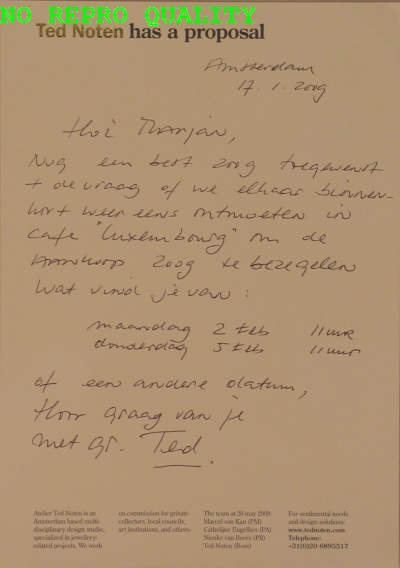 NO REPRO QUALITY
Ted Noten has a proposal
Amsterdam
17.1.2009
Hoi Marjan,
Nog een best 2009 toegewenst
+ de vraag of we elkaar binnen-
kort weer eens ontmoeten in
café "Luxembourg" om de
aankoop 2009 te bezegelen
Wat vind je van:
maandag 2 feb 11 uur
donderdag 5 feb 11 uur
of een andere datum,
Hoor graag van je
met gr. Ted.
Atelier Ted Noten is an
Amsterdam based multi-
disciplinary design studio,
specialized in jewellery-
related projects. We work
on commission for private
collectors, local councils,
art institutions, and others.
The team at 28 may 2008:
Marcel van Kan (PM)
Cathelijne Engelkes (PA)
Nienke van Beers (PR)
Ted Noten (Boss)
For sentimental needs
and design solutions:
www.tednoten.com
Telephone:
+31(0)20 6895517